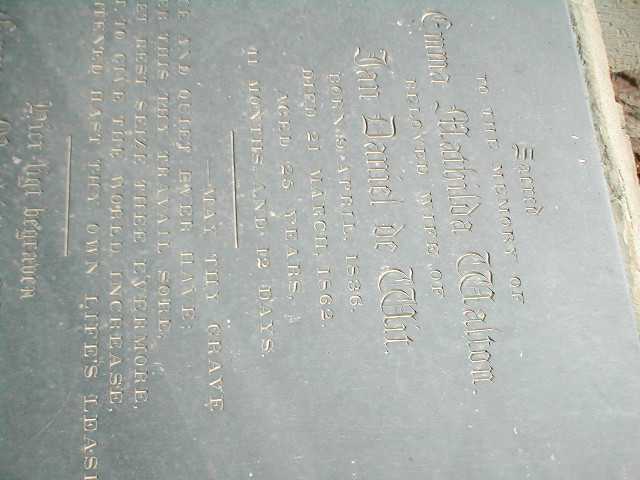 Sacred
TO THE MEMORY OF
Emma Mathilda Walton.
BELOVED WIFE OF
Jan Daniel de Wit.
BORN 9 APRIL, 1836.
DIED 21 MARCH, 1862
AGED 25 YEARS,
11 MONTHS AND 12 DAYS.
—MAY THY GRAVE
CE AND QUIET EVER HAVE;
ER THIS THY TRAVAIL SORE
ET REST SEIZE THEE EVERMORE,
T TO GIVE THE WORLD INCREASE,
TENED HAST THY OWN LIFE'S LEAS
Hier ligt begraven